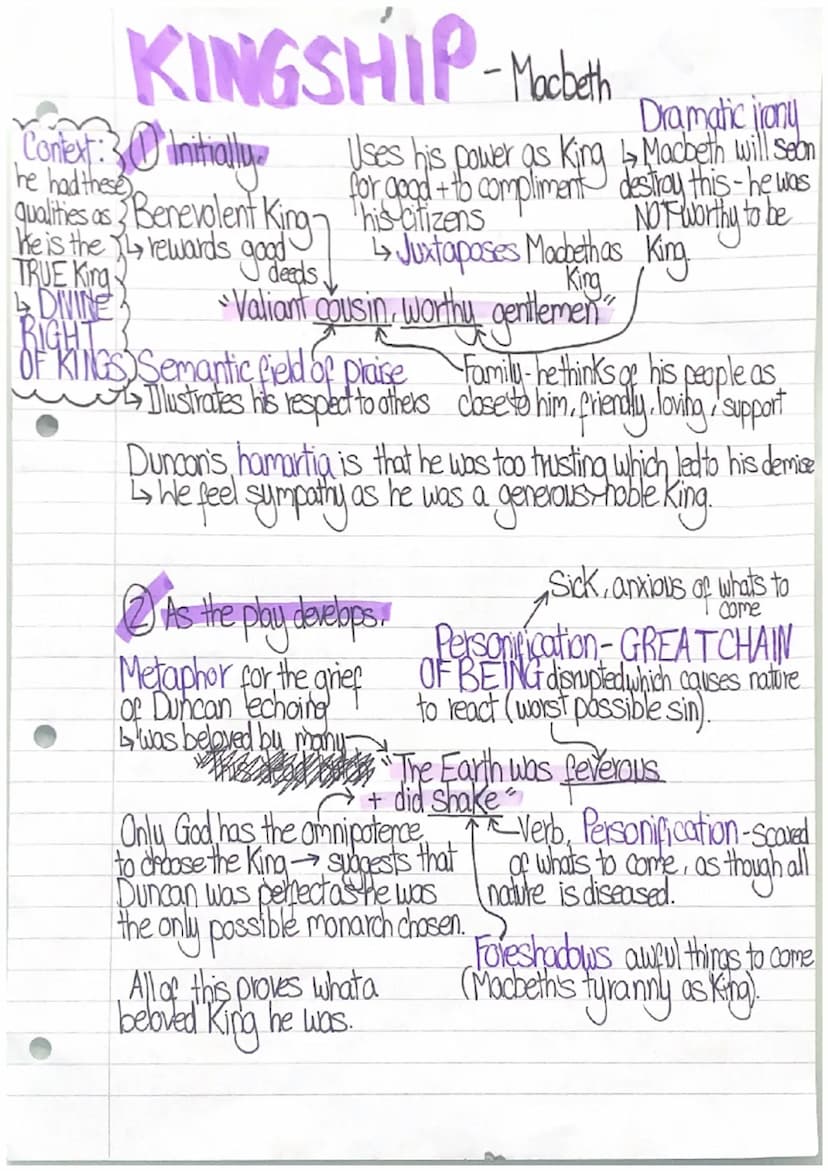 KINGSHIP - Macbeth
Context:
he had these
qualities as
he is the
TRUE King
↳ DIVINE
RIGHT
OF KINGS
① Initially.
Benevolent King
↳ rewards good
deeds.
Uses his power as King
for good + to compliment
his citizens
↳ Juxtaposes Macbeth as
King
Dramatic irony
↳ Macbeth will soon
destroy this - he was
NOT worthy to be
King.
"Valiant cousin, worthy gentlemen"
Semantic field of praise
↳ Illustrates his respect to others
Family - he thinks of his people as
close to him, friendly, loving, support
Duncan's hamartia is that he was too trusting which led to his demise
↳ We feel sympathy as he was a generous, noble King.
② As the play develops.
Metaphor for the grief
of Duncan echoing
↳ was beloved by many
Sick, anxious of whats to
come
Personification - GREAT CHAIN
OF BEING disrupted which causes nature
to react (worst possible sin).
"The Earth was feverous
+ did shake"
Only God has the omnipotence
to choose the King → suggests that
Duncan was perfect as he was
the only possible monarch chosen.
Verb, Personification - scared
of whats to come, as though all
nature is diseased.
Foreshadows awful things to come
(Macbeth's tyranny as King).
All of this proves what a
beloved King he was.